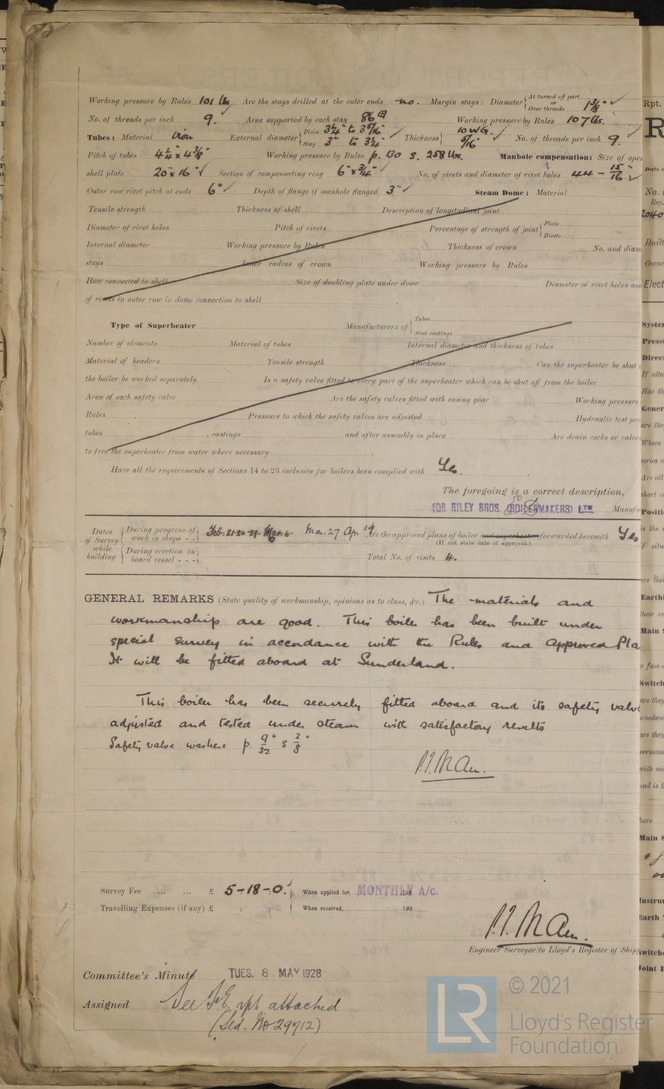 Working pressure by Rules 101 lbs Are the stays drilled at the outer ends no. Margin stays: Diameter { At turned off part, or Over threads 1⅜" 
No. of threads per inch 9. Area supported by each stay 86 Working pressure by Rules 107 lbs.
Tubes: Material iron External diameter { Plain 3¼" to 3 5/16" Stay 3" to 3¼" Thickness { 10 W.G. 5/16 No. of threads per inch 9.
Pitch of tubes 4¼" x 4⅛" Working pressure by Rules p. 130 s. 258 lbs. Manhole compensation: Size of open
shell plate 20" x 16" Section of compensating ring 6" x ¾" No. of rivets and diameter of rivet holes 44 - 15/16
Outer row rivet pitch at ends 6" Depth of flange if manhole flanged 3" Steam Dome: Material
Tensile strength Thickness of shell Description of longitudinal joint
Diameter of rivet holes Pitch of rivets Percentage of strength of joint { Plate Rivets
Internal diameter Working pressure by Rules Thickness of crown No. and diam
stays Inner radius of crown Working pressure by Rules
How connected to shell Size of doubling plate under dome Diameter of rivet holes and
of rivets in outer row in dome connection to shell
Type of Superheater Manufacturers of { Tubes Steel castings
Number of elements Material of tubes Internal diameter and thickness of tubes
Material of headers Tensile strength Thickness Can the superheater be shut
the boiler be worked separately Is a safety valve fitted to every part of the superheater which can be shut off from the boiler
Area of each safety valve Are the safety valves fitted with easing gear Working pressure
Rules Pressure to which the safety valves are adjusted Hydraulic test pre
tubes , castings and after assembly in place Are drain cocks or valve
to free the superheater from water where necessary
Have all the requirements of Sections 14 to 23 inclusive for boilers been complied with Yes.
The foregoing is a correct description,
FOR RILEY BROS. (BOILERMAKERS) LTD. Manuf
Dates of Survey while building { During progress of work in shops - - Feb. 21. 24. 29. Mar. 6. Mar. 27 Apr. 19. Are the approved plans of boiler and superheater forwarded herewith Yes
(If not state date of approval.)
During erection on board vessel - - Total No. of visits 4.
GENERAL REMARKS (State quality of workmanship, opinions as to class, &c.) The materials and
workmanship are good. This boiler has been built under
special survey in accordance with the Rules and Approved Pla
It will be fitted aboard at Sunderland.
This boiler has been securely fitted aboard and its safety valv
adjusted and tested under steam with satisfactory results
Safety valve washers p. 9/32" s 3/8"
Survey Fee ... ... £ 5-18-0. When applied for, MONTHLY A/c. 192
Travelling Expenses (if any) £ : : When received, 192
Engineer Surveyor to Lloyd's Register of Ship
Committee's Minute TUES. 8 MAY 1928
Assigned See F.E. rpt attached
(Sld. No 29712)
LR © 2021
Lloyd's Register
Foundation